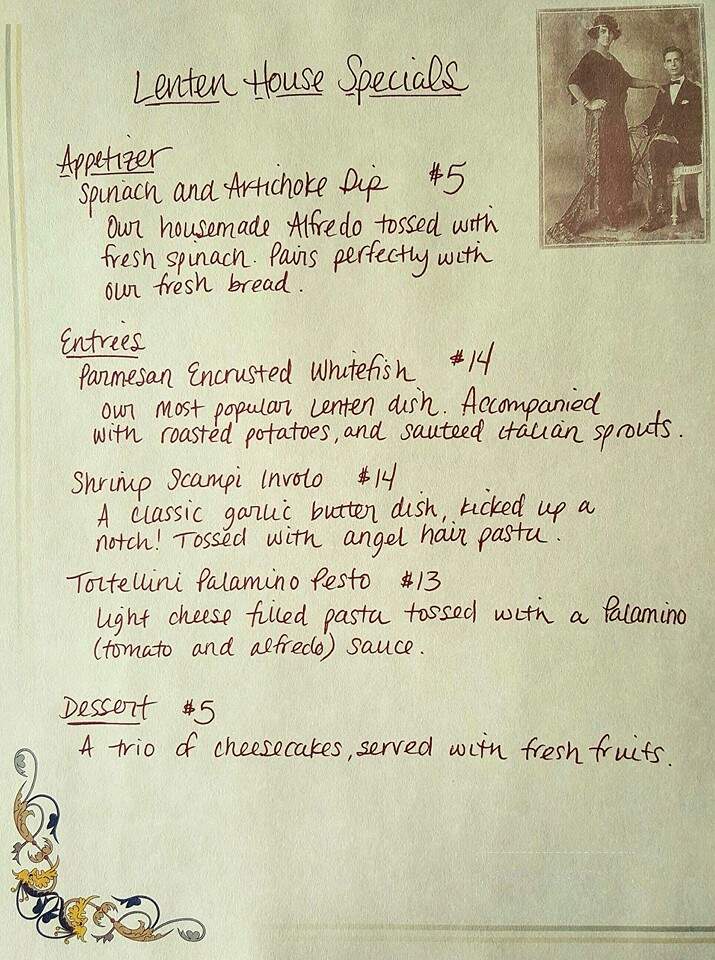 Lenten House Specials
Appetizer
Spinach and Artichoke Dip $5
Our housemade Alfredo tossed with
fresh spinach. Pairs perfectly with
our fresh bread.
Entrées
Parmesan Encrusted Whitefish $14
Our most popular Lenten dish. Accompanied
with roasted potatoes, and sauteed italian sprouts.
Shrimp Scampi Involo $14
A classic garlic butter dish, kicked up a
notch! Tossed with angel hair pasta.
Tortellini Palamino Pesto $13
Light cheese filled pasta tossed with a Palamino
(tomato and alfredo) sauce.
Dessert $5
A trio of cheesecakes, served with fresh fruits.